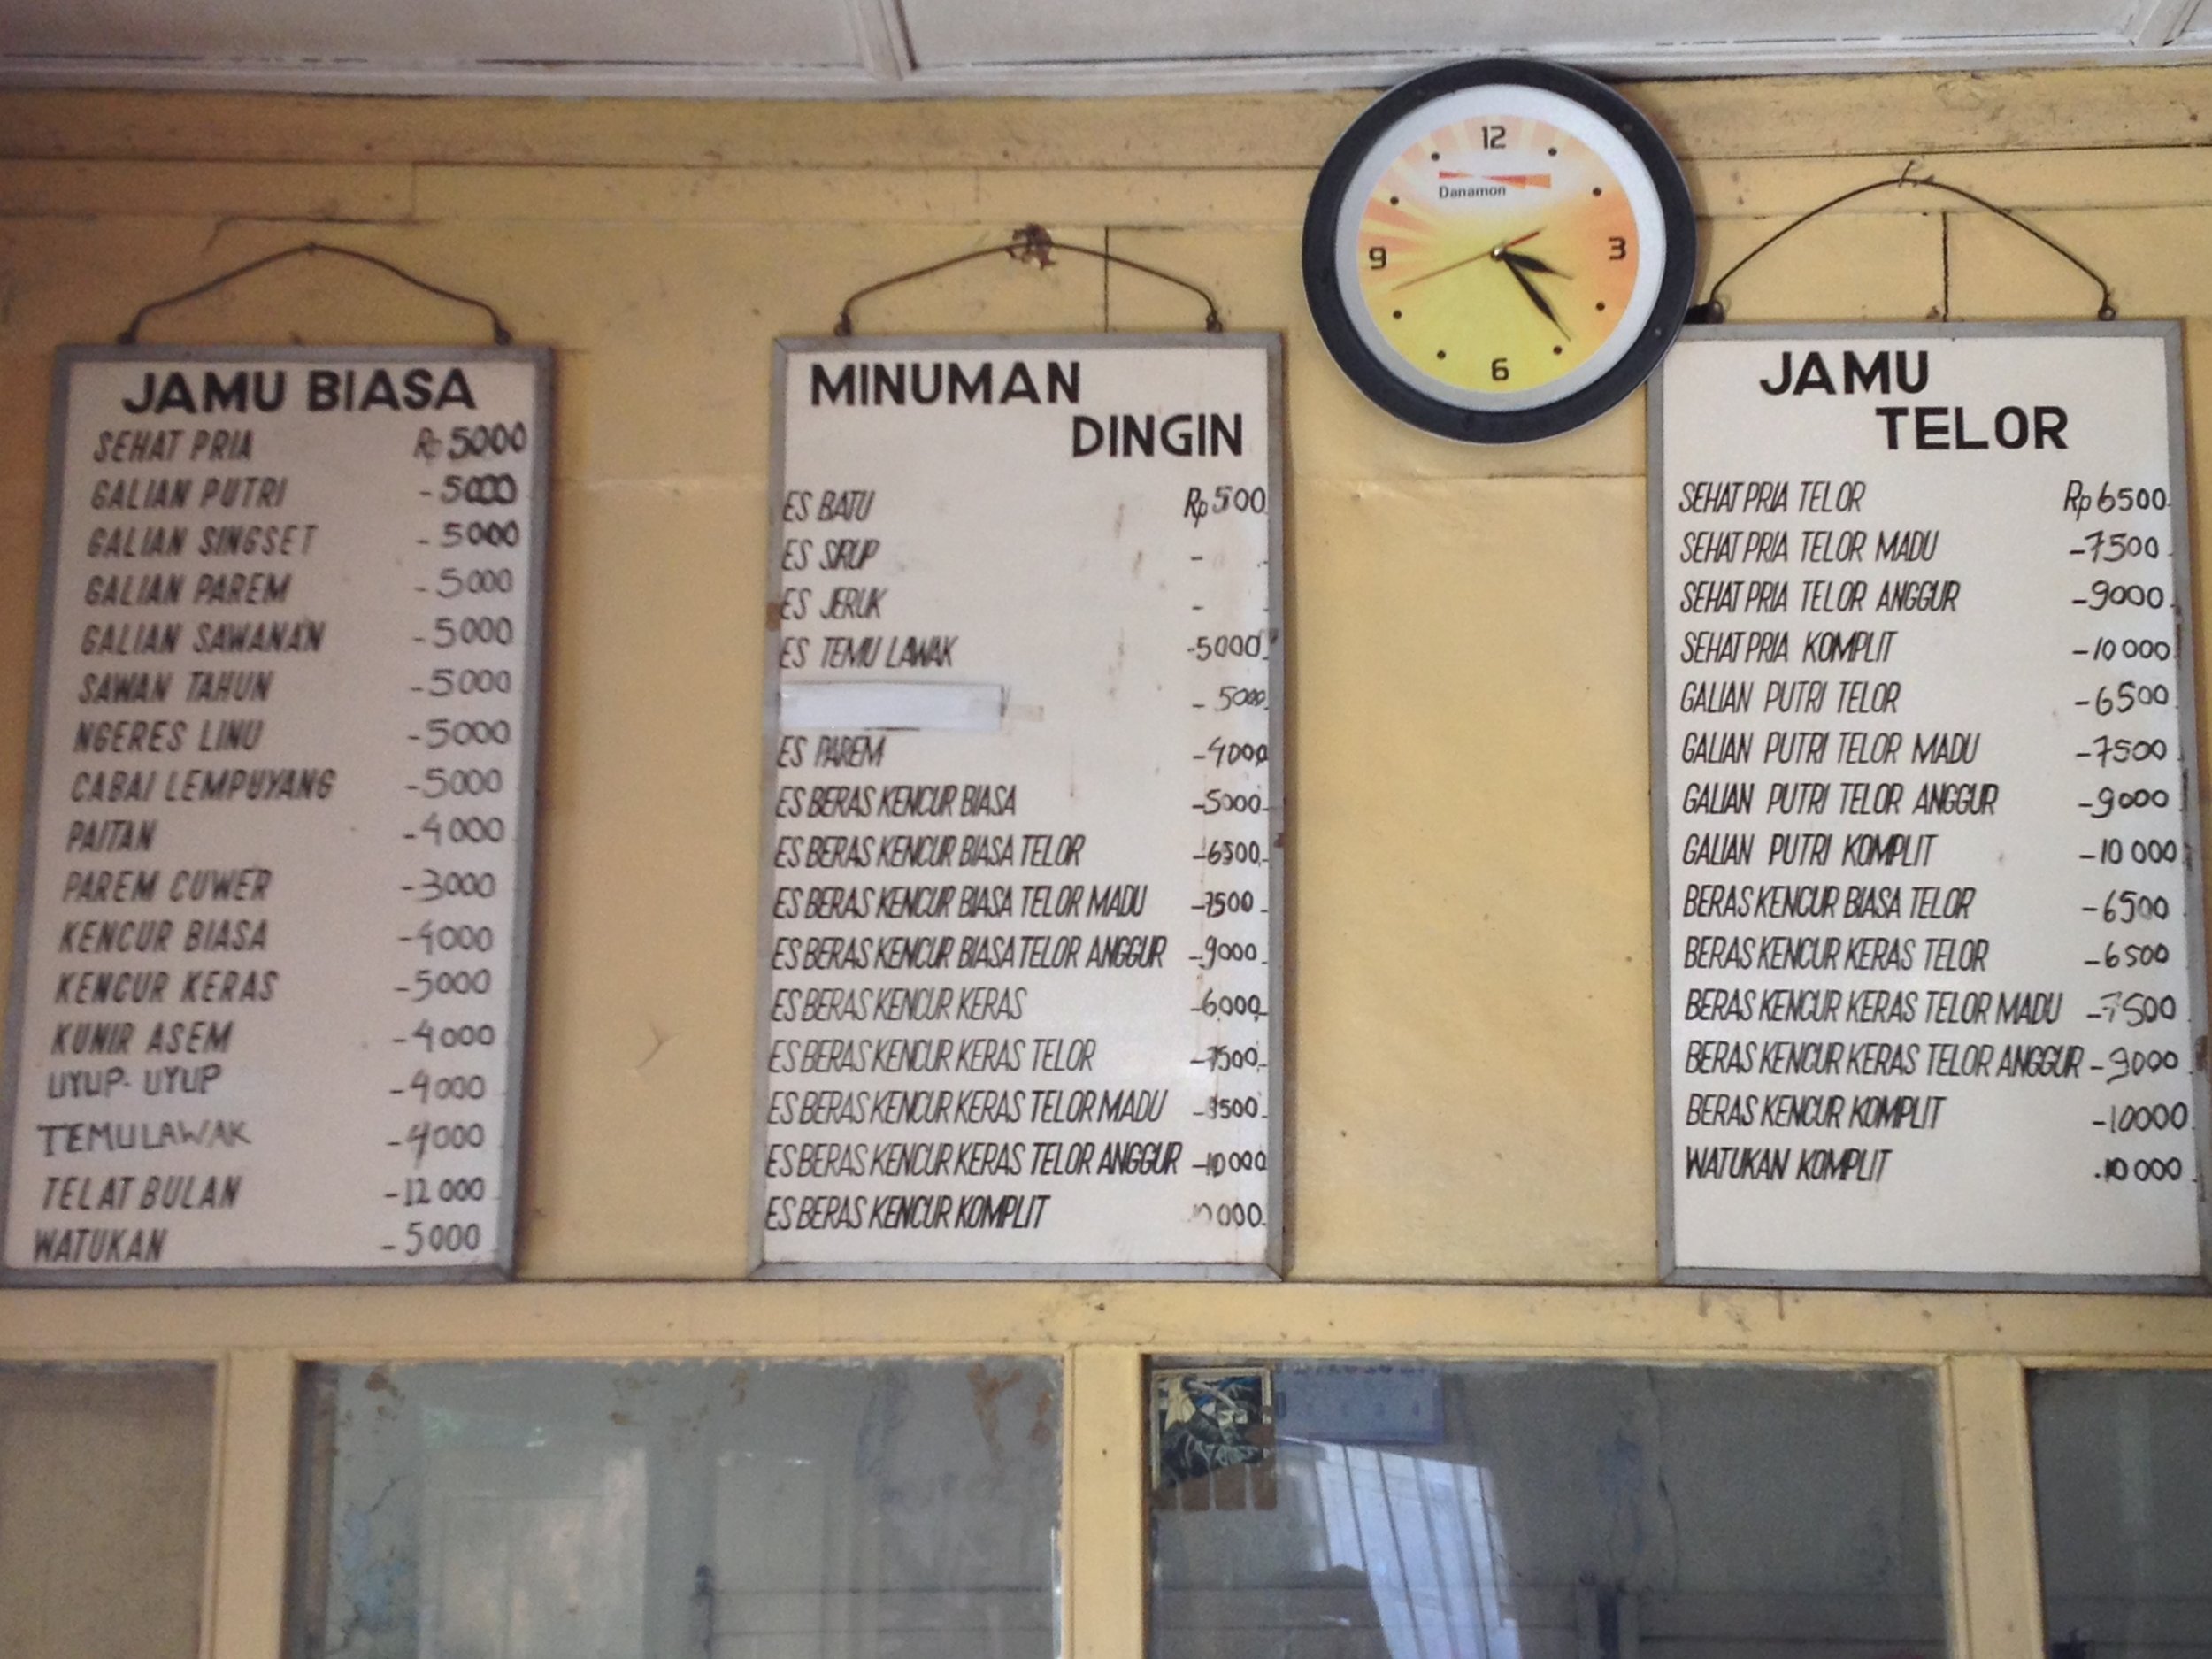 JAMU BIASA
SEHAT PRIA Rp 5000
GALIAN PUTRI -5000
GALIAN SINGSET -5000
GALIAN PAREM -5000
GALIAN SAWANAN -5000
SAWAN TAHUN -5000
NGERES LINU -5000
CABAI LEMPUYANG -5000
PAITAN -4000
PAREM CUWER -3000
KENCUR BIASA -4000
KENCUR KERAS -5000
KUNIR ASEM -4000
UYUP-UYUP -4000
TEMULAWAK -4000
TELAT BULAN -12000
WATUKAN -5000
MINUMAN
DINGIN
ES BATU Rp 500
ES SIRUP -
ES JERUK -
ES TEMU LAWAK -5000
-5000
ES PAREM -4000
ES BERAS KENCUR BIASA -5000
ES BERAS KENCUR BIASA TELOR -6500
ES BERAS KENCUR BIASA TELOR MADU -7500
ES BERAS KENCUR BIASA TELOR ANGGUR -9000
ES BERAS KENCUR KERAS -6000
ES BERAS KENCUR KERAS TELOR -7500
ES BERAS KENCUR KERAS TELOR MADU
ES BERAS KENCUR KERAS TELOR ANGGUR -10000
ES BERAS KENCUR KOMPLIT
12
3
6
9
Danamon
JAMU
TELOR
SEHAT PRIA TELOR Rp 6500
SEHAT PRIA TELOR MADU -7500
SEHAT PRIA TELOR ANGGUR -9000
SEHAT PRIA KOMPLIT -10000
GALIAN PUTRI TELOR -6500
GALIAN PUTRI TELOR MADU -7500
GALIAN PUTRI TELOR ANGGUR -9000
GALIAN PUTRI KOMPLIT -10000
BERAS KENCUR BIASA TELOR -6500
BERAS KENCUR KERAS TELOR -6500
BERAS KENCUR KERAS TELOR MADU -7500
BERAS KENCUR KERAS TELOR ANGGUR -9000
BERAS KENCUR KOMPLIT -10000
WATUKAN KOMPLIT 10000